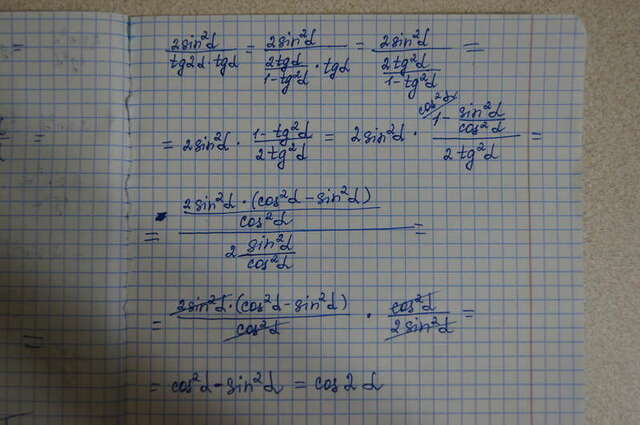 2sin²α/(tg2α · tgα) = 2sin²α/((2tgα/(1-tg²α)) · tgα) = 2sin²α/(2tg²α/(1-tg²α)) =
= 2sin²α · (1-tg²α)/(2tg²α) = 2sin²α · (cos²α/ 1 - sin²α/cos²α)/(2tg²α) =
= (2sin²α · (cos²α - sin²α)/cos²α)/(2 sin²α/cos²α) =
= 2sin²α · (cos²α - sin²α)/cos²α · cos²α/2sin²α =
= cos²α - sin²α = cos2α